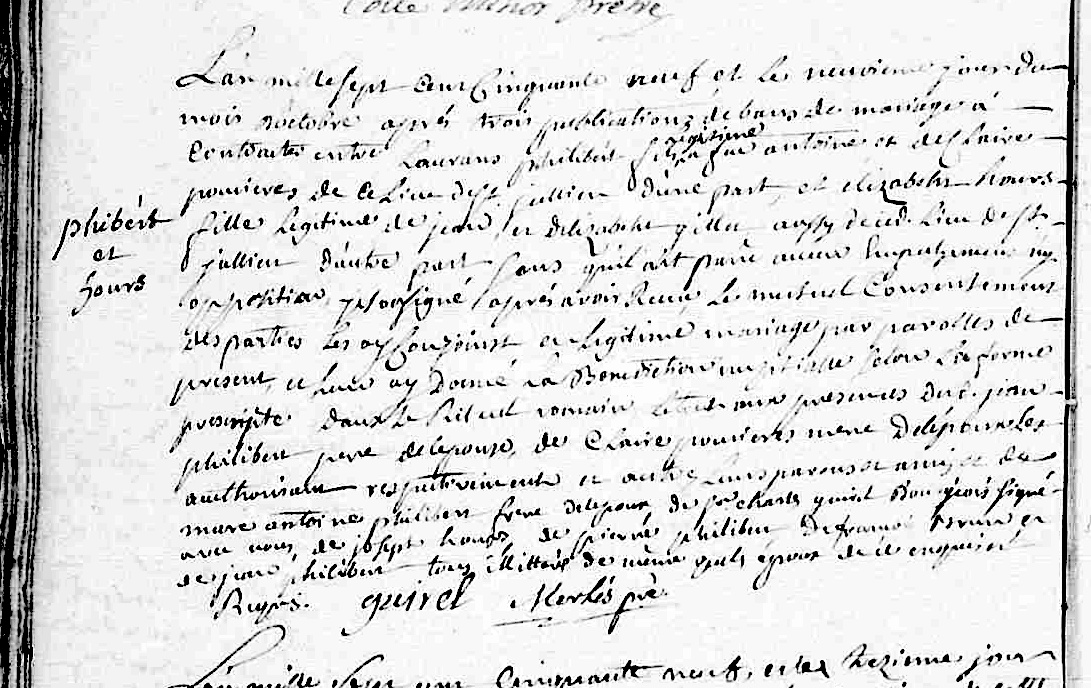 prêtre
L'an mille sept cent Cinquante neuf et le neuvieme jour du
mois d'octobre aprés trois publications de bans de mariage à
Contracter entre Laurans philibert fils legitime de feu antoine et de Claire
pouieres de ce Lieu de St jullien d'une part, et elizabeth hours
fille Legitime de jean et d'elizabeth gilles aussy de cedt Lieu de St
jullien d'autre part sans qu'il ait parû aucun Empechement ny
opposition je soussigné aprés avoir Receu Le mutuel Consentement
des parties Les ay Conjoint en Legitime mariage par parolles de
présent, et Leur ay Donné La Benediction nuptialle selon La forme
prescripte dans Le Rituel romain, Le tout aux presences dud. jean
philibert pere de l'epouse, de Claire pouieres mere de l'époux Les
authorisant respectivement et autres Leurs parens et amis et de
marc antoine philibert frere de l'epoux de Sr charles guirel Bourgeois signé
avec nous, de joseph hours, de pierre philibert de françois et
de jean philibert tous illitterés de même que les epoux de ce enquis et
Requis. guirel pré
philibért
et
hours
L'an mille sept cent Cinquante neuf, et le treizieme jour